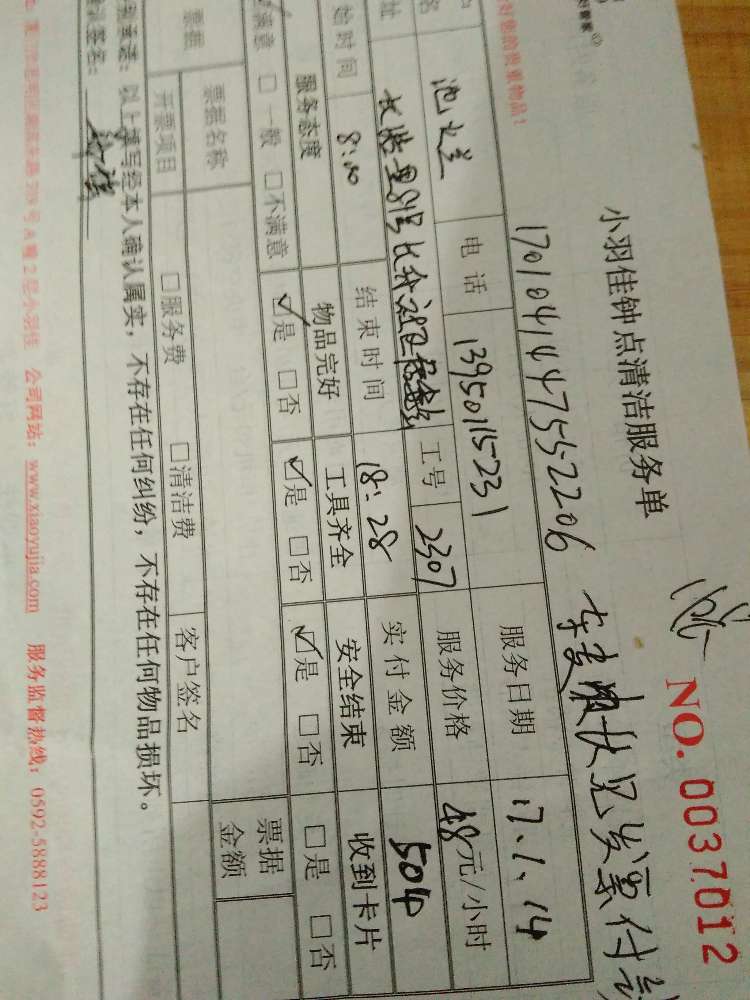 好您的贵重物品!
小羽佳钟点清洁服务单
NO. 0037012
1701041447552206
见发票付
电话 13950115231 服务日期 17.1.14
长 里81号长 社区 工号 2307 服务价格 48元/小时
始时间 8:00 结束时间 18:28 实付金额 504
服务态度 物品完好 工具齐全 安全结束 收到卡片
满意 □一般 □不满意 ☑是 □否 ☑是 □否 ☑是 □否 □是 □否
票据 票据名称 票据金额
开票项目 □服务费 □清洁费 客户签名
以上填写经本人确认属实，不存在任何纠纷，不存在任何物品损坏。
签名：
号A幢2层小羽佳 公司网站：www.xiaoyujia.com 服务监督热线：0592-5888123